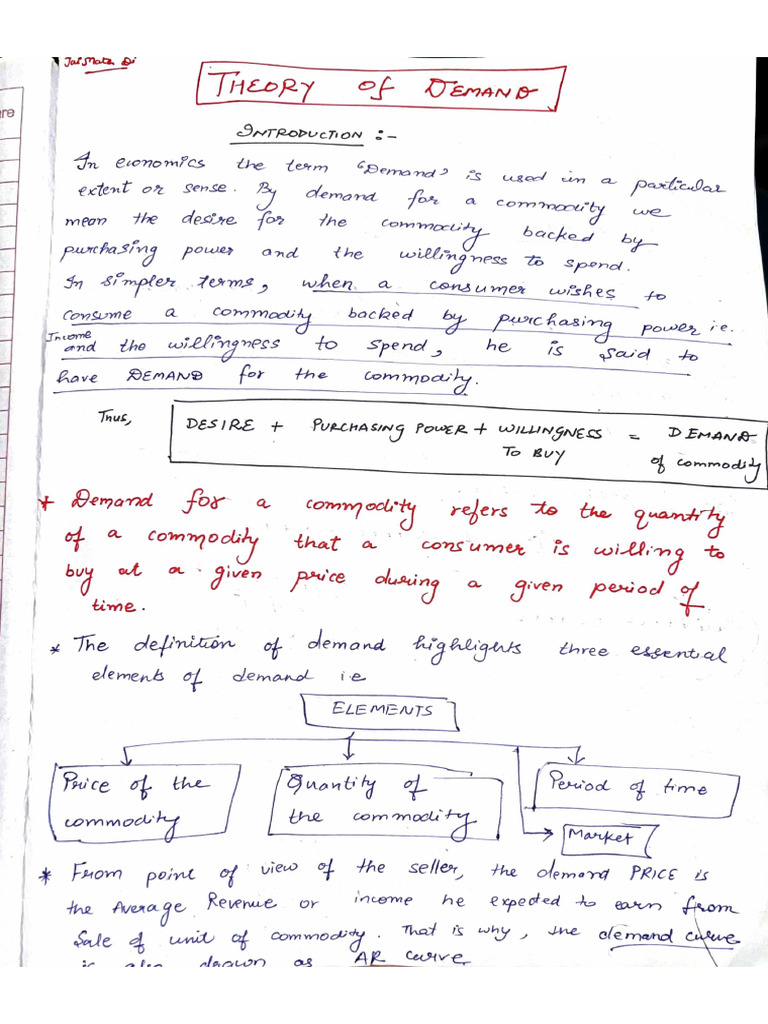 Jai Mata Di
THEORY Of DEMAND
are
INTRODUCTION :-
In economics the term "Demand" is used in a particular
extent or sense. By demand for a commodity we
mean the desire for the commodity backed by
purchasing power and the willingness to spend.
In simpler terms, when a consumer wishes to
consume a commodity backed by purchasing power i.e.
Income
and the willingness to spend, he is said to
have DEMAND for the commodity.
Thus, DESIRE + PURCHASING POWER + WILLINGNESS = DEMAND
TO BUY of commodity
* Demand for a commodity refers to the quantity
of a commodity that a consumer is willing to
buy at a given price during a given period of
time.
* The definition of demand highlights three essential
elements of demand i.e
ELEMENTS
Price of the Quantity of Period of time
commodity the commodity
Market
* From point of view of the seller, the demand PRICE is
the Average Revenue or income he expected to earn from
Sale of unit of commodity. That is why, the demand curve
is also drawn as AR curve